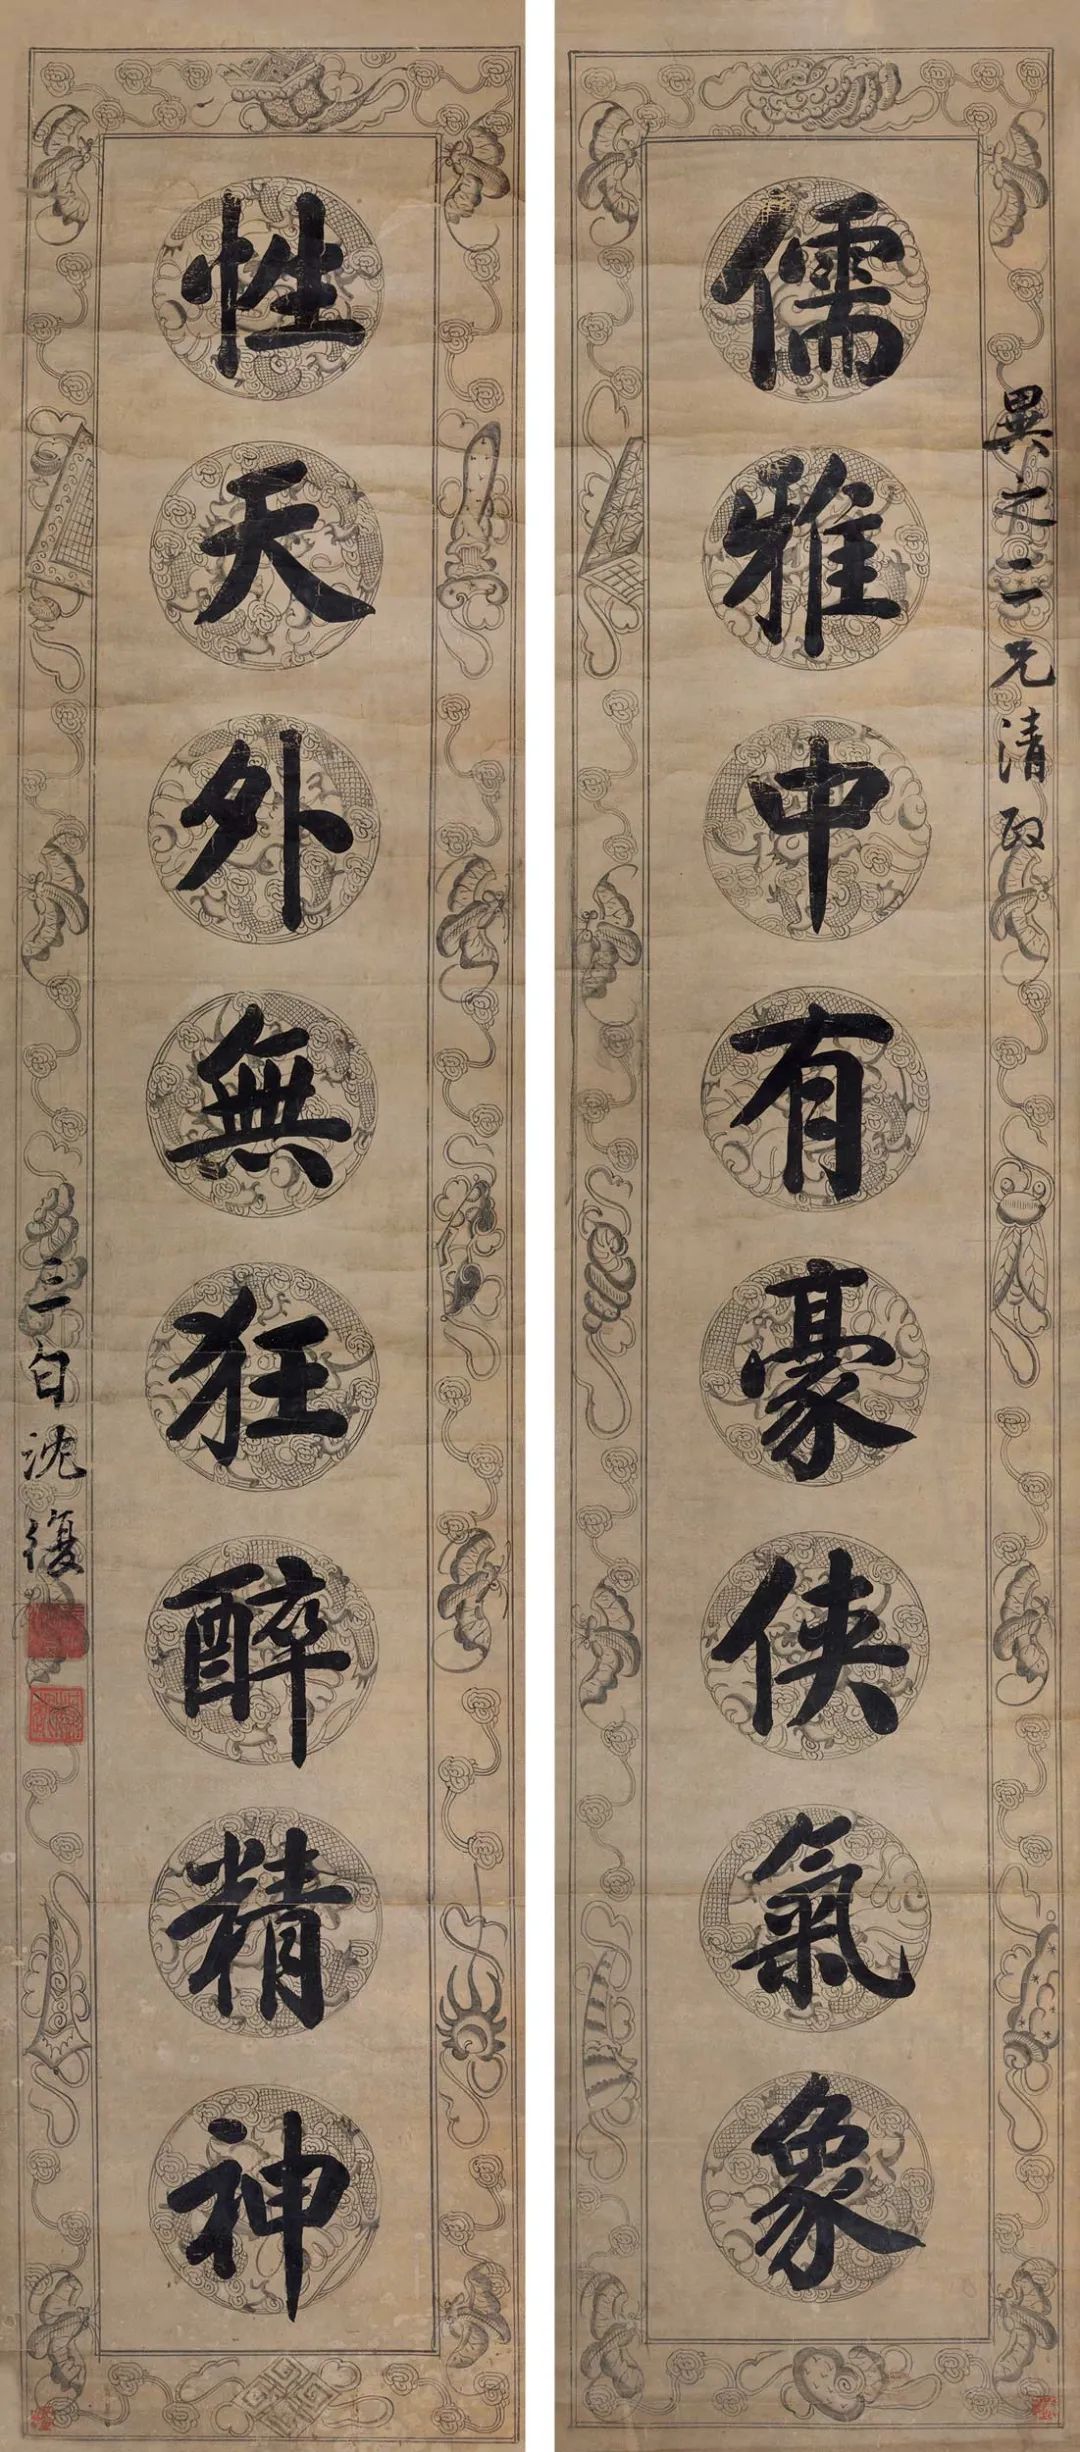 異之二兄清政
儒雅中有豪俠氣象
性天外無狂醉精神
三白沈復